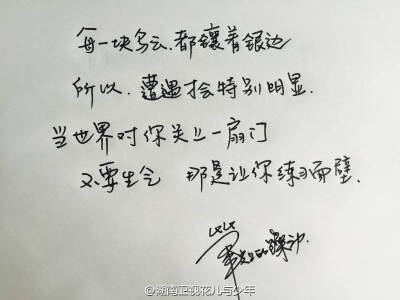 每一块乌云,都镶着银边
所以,遭遇才会特别明显.
当世界对你关上一扇门
不要生气 那是让你练习面壁.
@湖南卫视花儿与少年